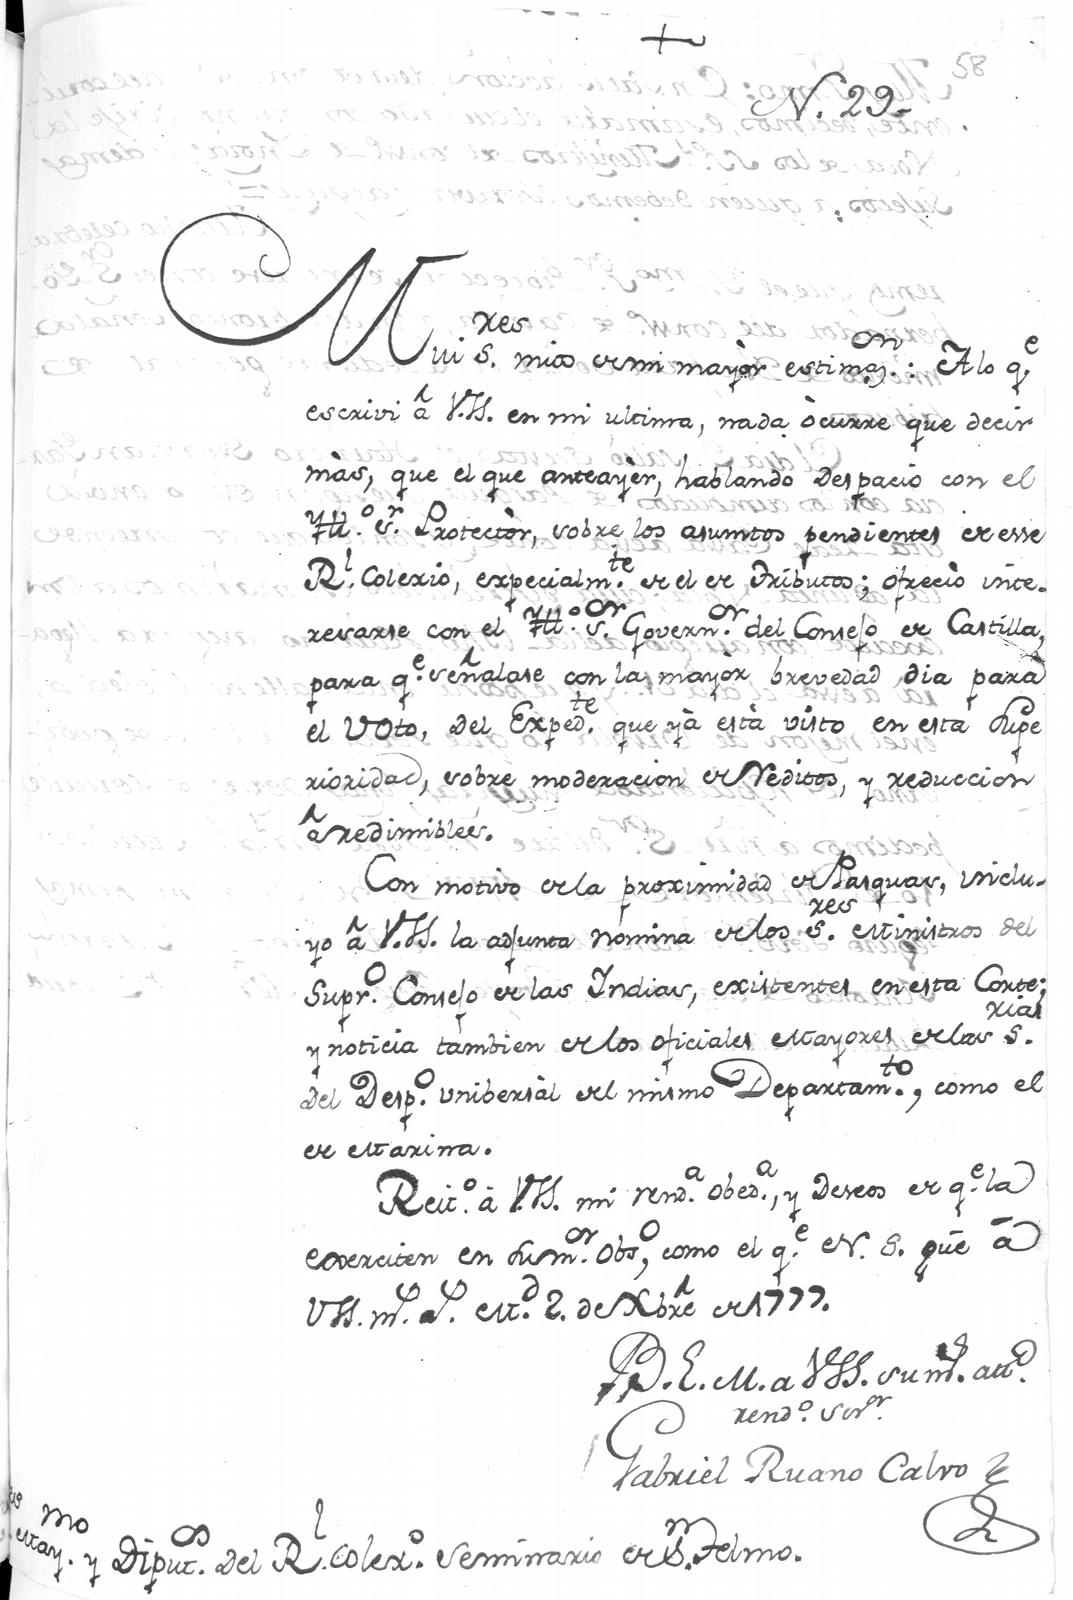 58
N. 29.
Mui S.res mios de mi mayòr estimaz.on: A lo q.e
escrivi â V.SS. en mi ultima, nada òcurre que decir
màs, que el que anteayèr, hablando despacio con el
Yll.o S.r Protectòr, sobre los asuntos pendientes de esse
R.l Colexio, expecialm.te de el de Tributos; ofreciò inte-
resarse con el Yll.o S.or Govern.or del Consejo de Castilla,
para q.e señalase con la mayor brevedad dia para
el Voto, del Exped.te que yà està visto en esta Supe
rioridad, sobre moderacion de Reditos, y reduccion
â redimibles.
Con motivo de la proximidad de Pasquas, inclu-
yo â V.SS. la adjunta nomina de los S.res Ministros del
Supr.o Consejo de las Indias, existentes en esta Corte;
y noticia tambien de los oficiales Mayores de las S.rias
del Desp.o unibersàl del mismo Departam.to, como el
de Marina.
Reit.o à V.SS. mi rend.a obed.a, y deseos de q.e la
exerciten en su m.or obs.o, como el q.e N. S. gũe ā
VSS. m.s a.s M.d 2. de Xbrê de 1777.
B. L. M. a VSS. su m.s att.o
rend.o ser.or
Gabriel Ruano Calvo
May.mo y Diput.os del R.l Colex.o Seminario de S.n Telmo.